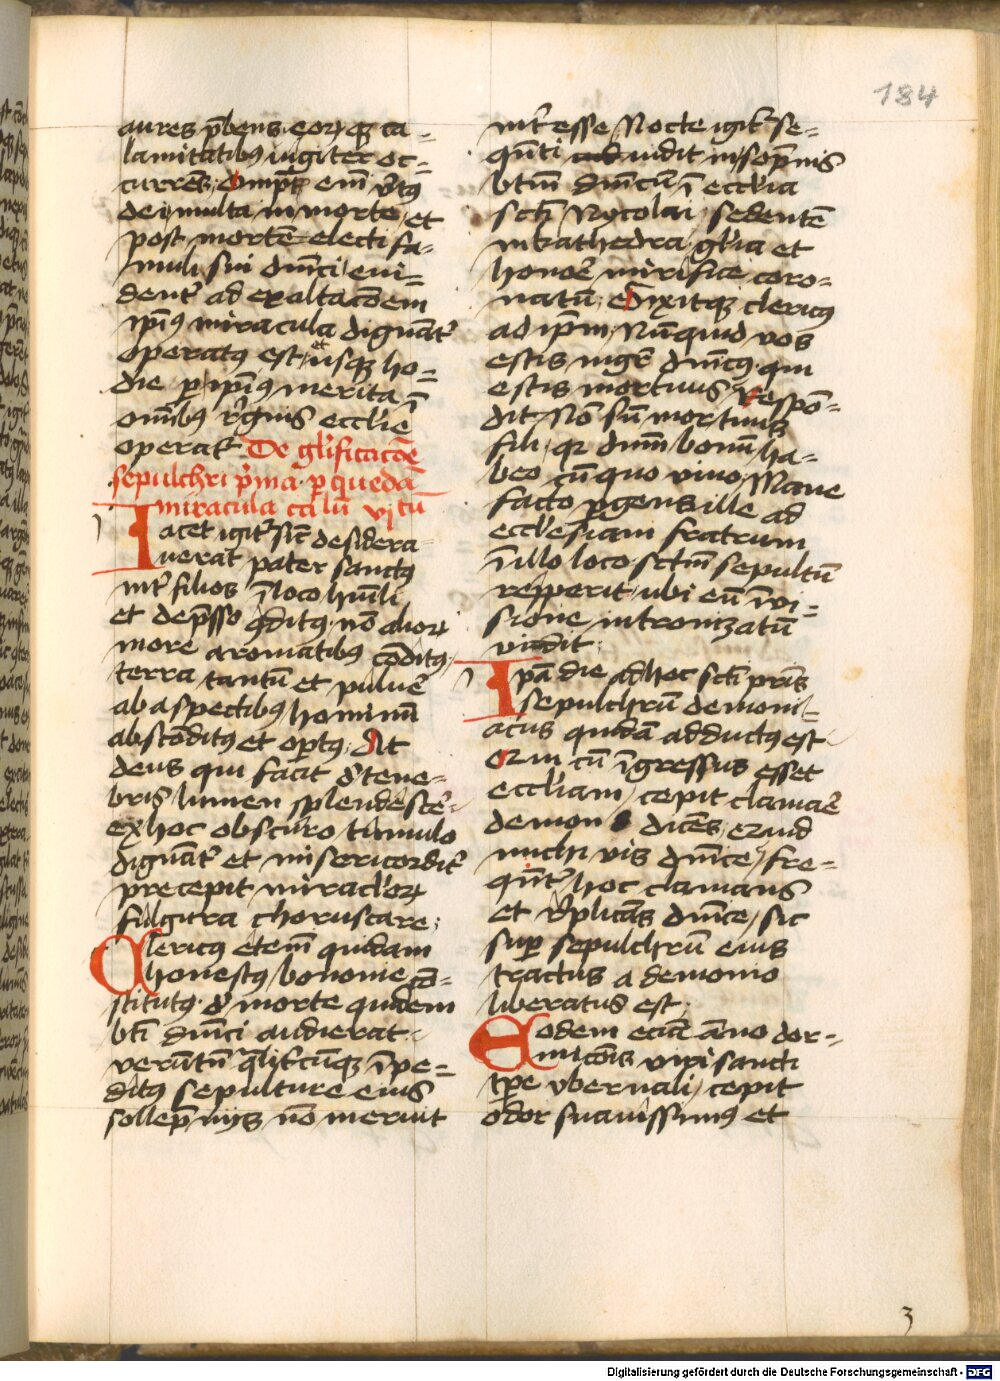 184
aures p̄bens eoꝝqꝫ ca-
lamitatibꝰ iugiter oc-
currens Compt̄ em̄ v̓tꝰ
dei multa in morte et
post mortē electi fa-
muli sui dn̄ici eui-
dent̓ ad exaltacōem
ip̄iꝰ miracula dignāt̓
operatꝰ est et usqꝫ ho-
die ꝑ ip̄iꝰ merita
om̄ibꝰ r̓gnis ecclīe ī
operat̓ De gl̓ificacōe
sepulchri p̓ma ꝑ quedā
miracula ca̓lū vj tū
Iacet igit̓ sic̄ desidera
uerat pater sanctꝰ
int̓ filios ī loco hūili
et dep̄sso ꝯditꝰ nō alioꝝ
more aromatibꝰ cōditꝰ
terra tantū et puluē
ab aspectibꝰ hominū
abscōditꝰ et optꝰ At
deus qui facit d̓ tene-
bris lumen splendesce̓-
ex hoc obscuro tumulo
dignāt̓ et misericordit̓
precepit miracl̓oꝝ
fulgura choruscare
Clericꝰ etem̄ quidam
honestꝰ bononie cō-
stitutꝰ d̓ morte quidem
bt̄i dn̄ici audierat
verūtn̄ q̄lit̓cūqꝫ īpe-
ditꝰ sepulture eius
sollep̄nijs nō meruit
int̓esse Nocte igit̓ se-
qn̄ti vidit in sop̄nis
bt̄m dn̄icū ī eccl̓ia
scī Nycolai sedentē
in kathedra gl̓ia et
honoē mirifice coro-
natū Dixitqꝫ clericꝰ
ad ip̄m Nūquid vos
estis mgr̄ dn̄icꝰ qui
estis mortuus Respō-
dit Nō sū mortuus
fili qꝛ dn̄m bonū ha-
beo cū quo viuo Mane
facto ꝑgens ille ad
eccl̓esiam fratrum
ī illo loco sct̄m sepultū
repperit ubi eū ī vi-
sione intronizatū
vidit
Ip̄a die ad hoc scī pr̄is
sepulchrū demoni-
acus quidā adductꝰ est
Qui cū īgressus esset
eccl̓iam cepit clamāe
demon dicēs Quid
michi vis dn̄ice fre-
qn̄t̓ hoc clamans
et r̓plicās dn̄ice sic
suꝑ sepulchrū eius
tractus a demonio
liberatus est
Eodem eciā āno dor-
micōis viri sancti
tꝑe vernali cepit
odor suauissimꝰ et
3
Digitalisierung gefördert durch die Deutsche Forschungsgemeinschaft - DFG